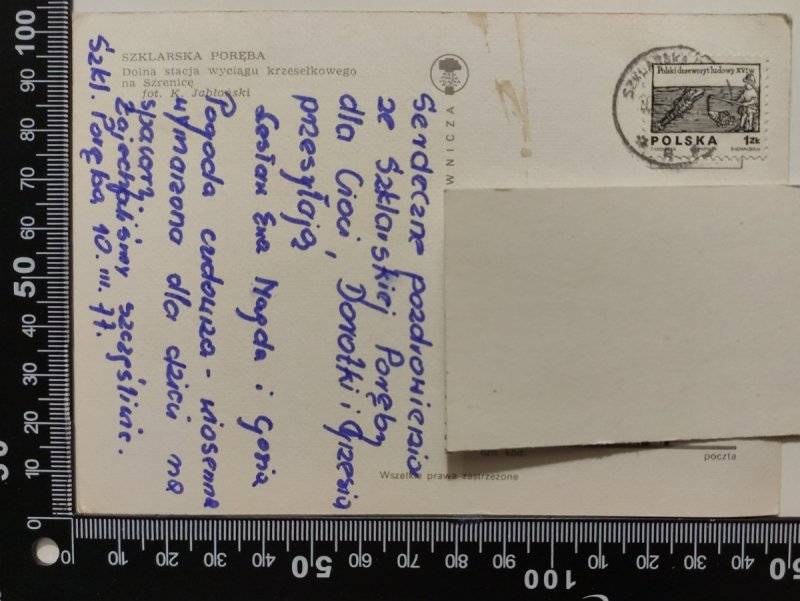 SZKLARSKA PORĘBA
Dolna stacja wyciągu krzesełkowego
na Szrenicę
fot. K. Jabłoński
Serdeczne pozdrowienia
ze Szklarskiej Poręby
dla Cioci, Dorotki i Grzesia
przesyłają
Ewa Magda i Gosia
Pogoda cudowna - wiosenna
wymarzona dla dzieci na
spacery.
Zajechaliśmy szczęśliwie.
Szkl. Poręba 10.III.77.
WNICZA
SZKLARSKA
Polski drzeworyt ludowy XVI w.
POLSKA 1 ZŁ
poczta
Wszelkie prawa zastrzeżone
100
90
80
70
60
50
40
30
20
10
0
0
10
20
30
40
50
60
70
80
90
100
10
20
30
40
50